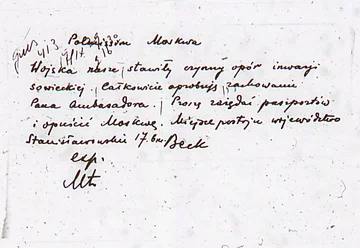 Polmission Moskwa
Wojska nasze stawiły czynny opór inwazji
sowieckiej. Całkowicie aprobuję zachowanie
Pana Ambasadora. Proszę zażądać paszportów
i opuścić Moskwę. Miejsce postoju województwo
Stanisławowskie 17.bm. Beck
exp.